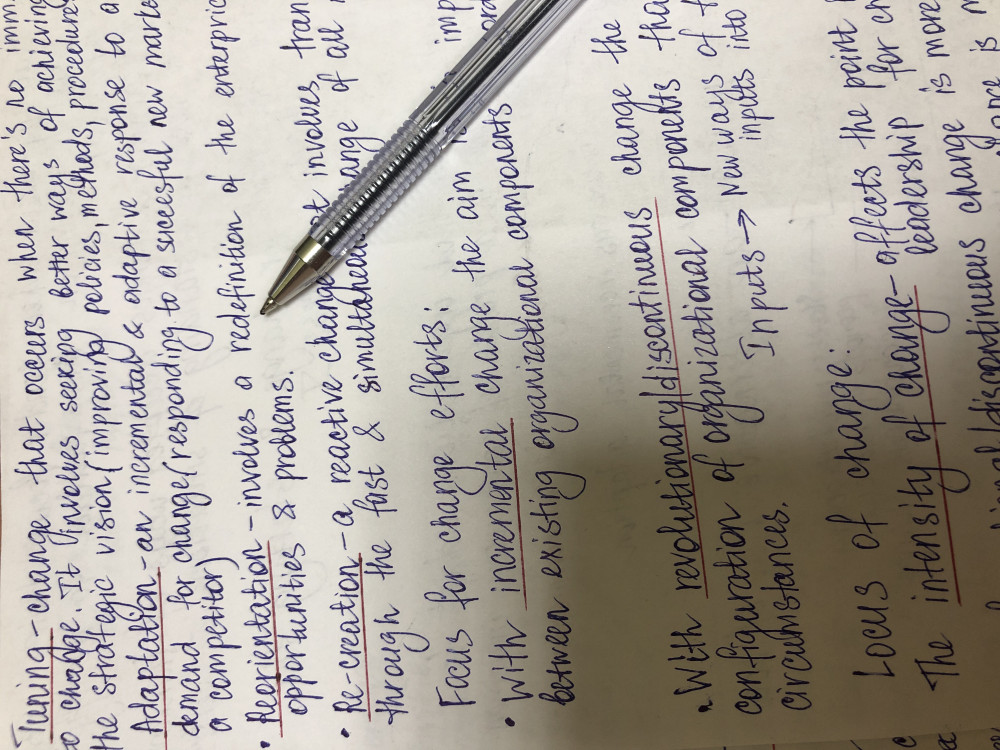 Tuning - change that occurs when there's no imm
to change. It involves seeking better ways of achieving
the strategic vision (improving policies, methods, procedure
Adaptation - an incremental & adaptive response to a
demand for change (responding to a succesful new marke
a competitor)
• Reorientation - involves a redefinition of the enterpric
opportunities & problems.
• Re-creation - a reactive change involves tran
through the fast & of all
Focus for change efforts:
• With incremental change the aim
between existing organizational components
• With revolutionary/discontinuous change the
configuration of organizational components tha
circumstances. Inputs → New ways of
inputs into
Locus of change:
The intensity of change - affects the point
leadership for ch
discontinuous change is more